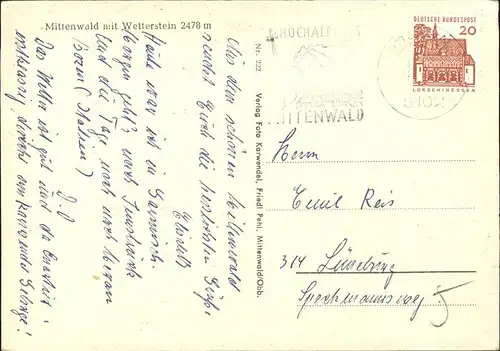 Mittenwald mit Wetterstein 2478 m
Aus dem schönen Mittenwald
sendet Euch die herzlichsten Grüße
Ewald
Heute war ich in Garmisch.
Morgen geht's nach Innsbruck
und die Tage noch nach Meran
Bozen (Italien)
D.O
Das Wetter ist gut und das Quartier
direkt am Karwendel Gebirge!
Nr. 222 Verlag Foto Karwendel, Friedl Pohl, Mittenwald/Obb.
HOCHALP
MITTENWALD
8102
DEUTSCHE BUNDESPOST
20
LORSCH/HESSEN
Herrn
Emil Reis
314 Lüneburg
Speckmannsweg 5